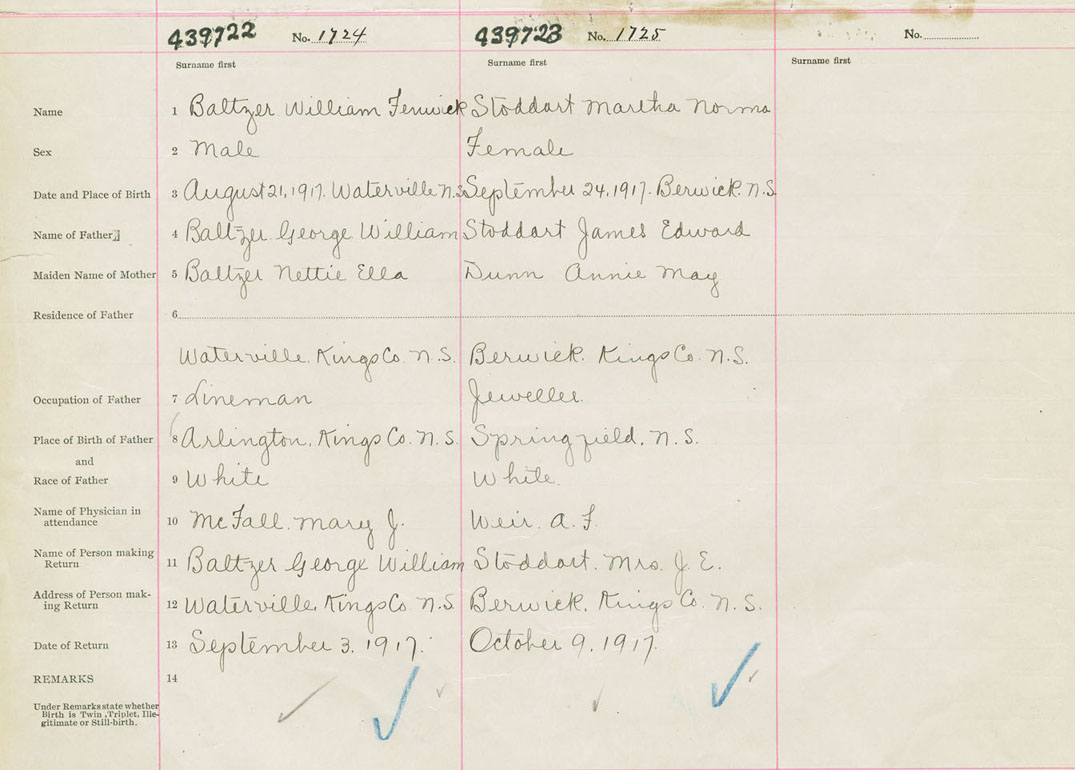 439722 No. 1724 439723 No. 1725 No.
Surname first Surname first Surname first
Name 1 Baltzer William Fenwick Stoddart Martha Norma
Sex 2 Male Female
Date and Place of Birth 3 August 21, 1917. Waterville N.S. September 24, 1917. Berwick. N.S.
Name of Father 4 Baltzer. George William Stoddart James Edward
Maiden Name of Mother 5 Baltzer Nettie Ella Dunn Annie May
Residence of Father 6
Waterville, Kings Co. N.S. Berwick. Kings Co. N.S.
Occupation of Father 7 Lineman Jeweller.
Place of Birth of Father 8 Arlington, Kings Co. N.S. Springfield, N.S.
and
Race of Father 9 White White.
Name of Physician in
attendance 10 McFall. Mary J. Weir. A. F.
Name of Person making
Return 11 Baltzer George William Stoddart. Mrs. J. E.
Address of Person mak-
ing Return 12 Waterville, Kings Co N.S. Berwick, Kings Co. N.S.
Date of Return 13 September 3. 1917. October 9, 1917.
REMARKS 14
Under Remarks state whether
Birth is Twin, Triplet, Ille-
gitimate or Still-birth.